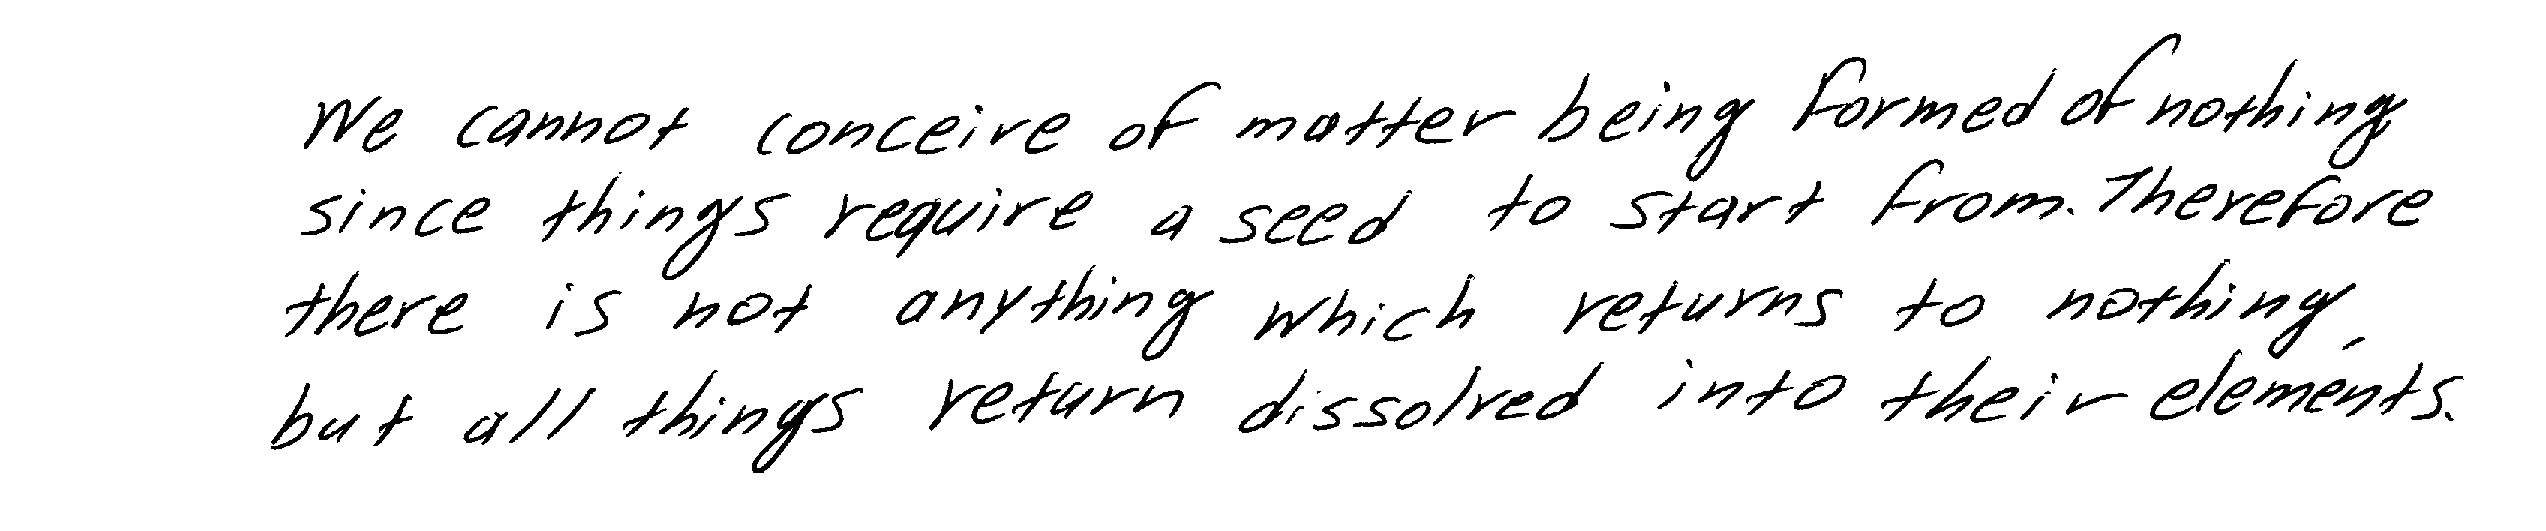 We cannot conceive of matter being formed of nothing,
since things require a seed to start from. Therefore
there is not anything which returns to nothing,
but all things return dissolved into their elements.